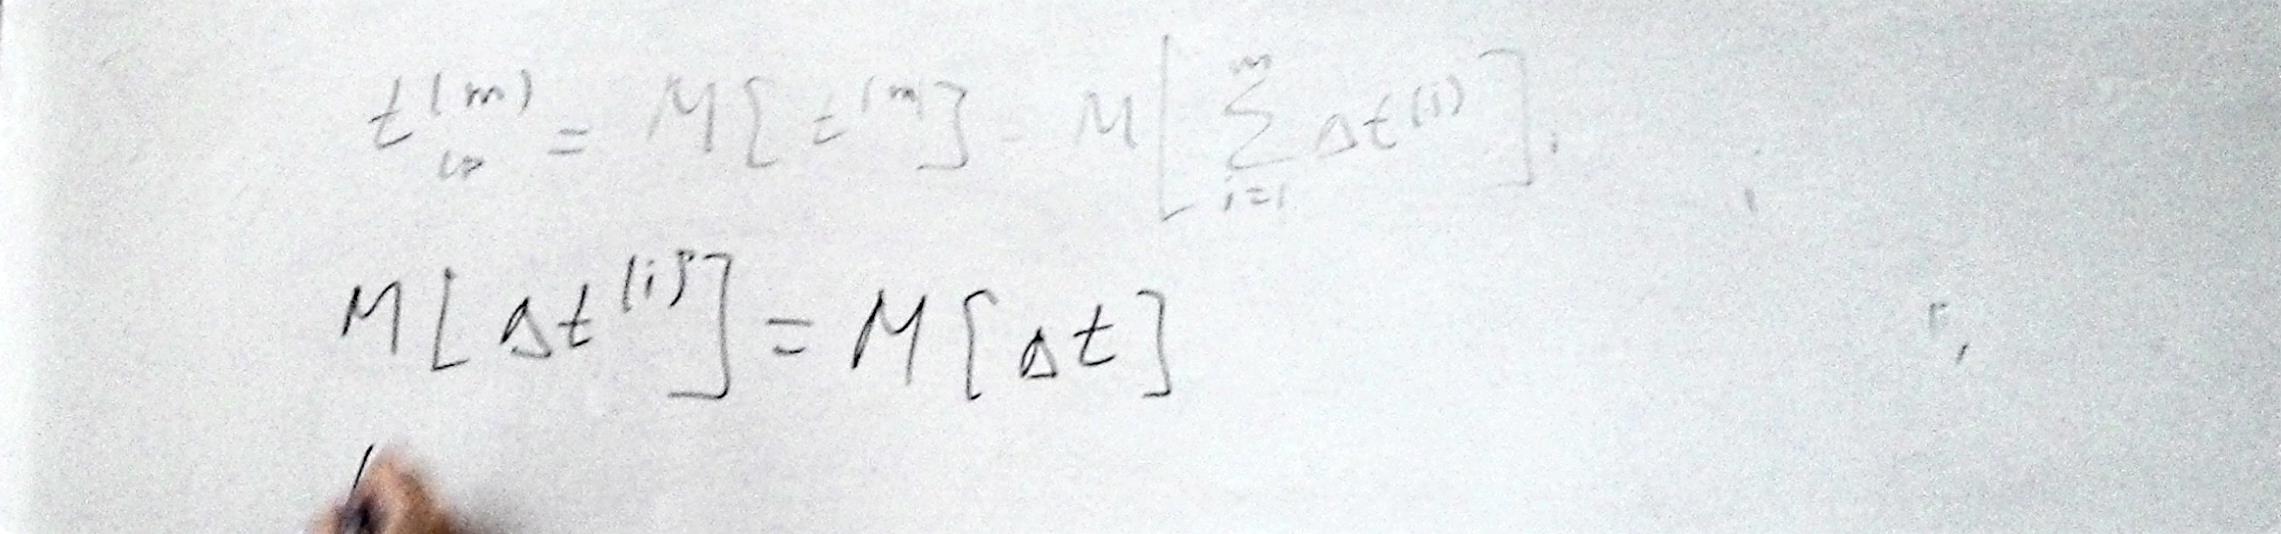 t^(m) = M[t^(m)] = M[∑_{i=1}^{m} Δt^(i)],
M[Δt^(i)] = M[Δt]